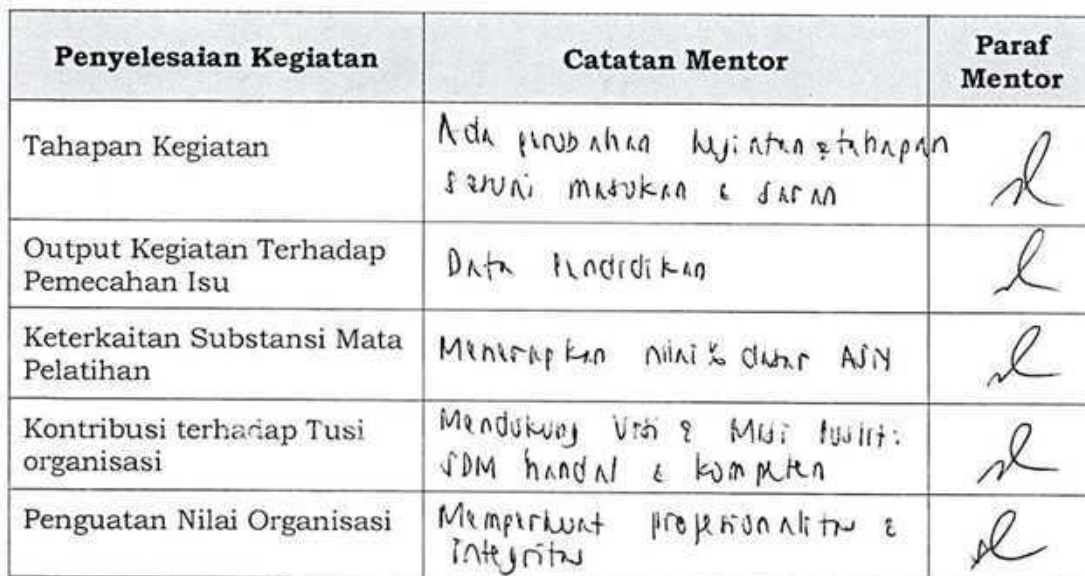 Penyelesaian Kegiatan
Catatan Mentor
Paraf
Mentor
Tahapan Kegiatan
Ada perubahan kegiatan & tahapan
sesuai masukan & saran
Output Kegiatan Terhadap
Pemecahan Isu
Data Pendidikan
Keterkaitan Substansi Mata
Pelatihan
Menerapkan nilai2 dasar ASN
Kontribusi terhadap Tusi
organisasi
Mendukung Visi & Misi
SDM handal & kompeten
Penguatan Nilai Organisasi
Memperkuat profesionalitas &
integritas